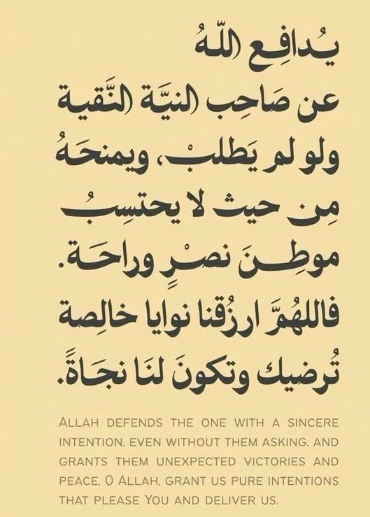 يُدافِع اللّهُ
عن صَاحِب النيَّة النَّقية
ولو لم يَطلبْ، ويمنحَهُ
مِن حيث لا يحتسِبُ
موطِنَ نصْرٍ وراحَة.
فاللهُمَّ ارزُقنا نوايا خالِصة
تُرضيك وتكونَ لنَا نجَاةً.
ALLAH DEFENDS THE ONE WITH A SINCERE
INTENTION, EVEN WITHOUT THEM ASKING, AND
GRANTS THEM UNEXPECTED VICTORIES AND
PEACE. O ALLAH, GRANT US PURE INTENTIONS
THAT PLEASE YOU AND DELIVER US.